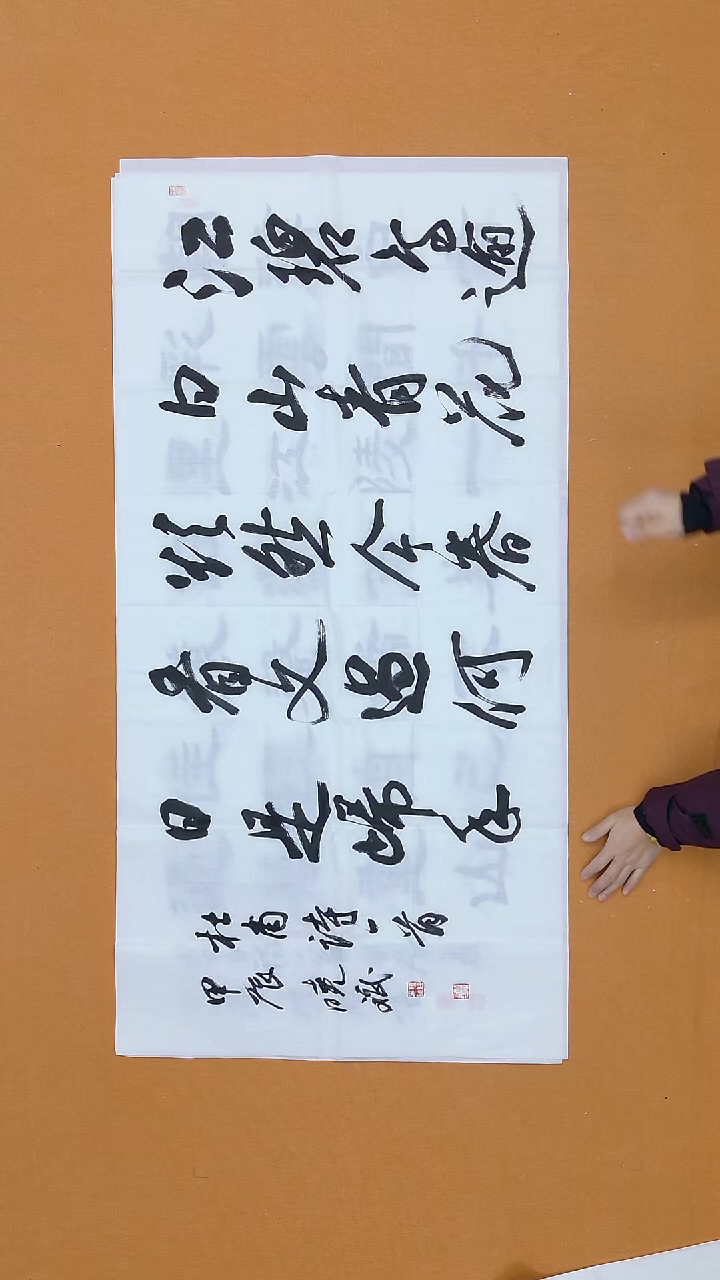 江碧鸟逾
白山青花
欲然今春
看又過何
日是歸年
杜甫詩一首
甲辰曉